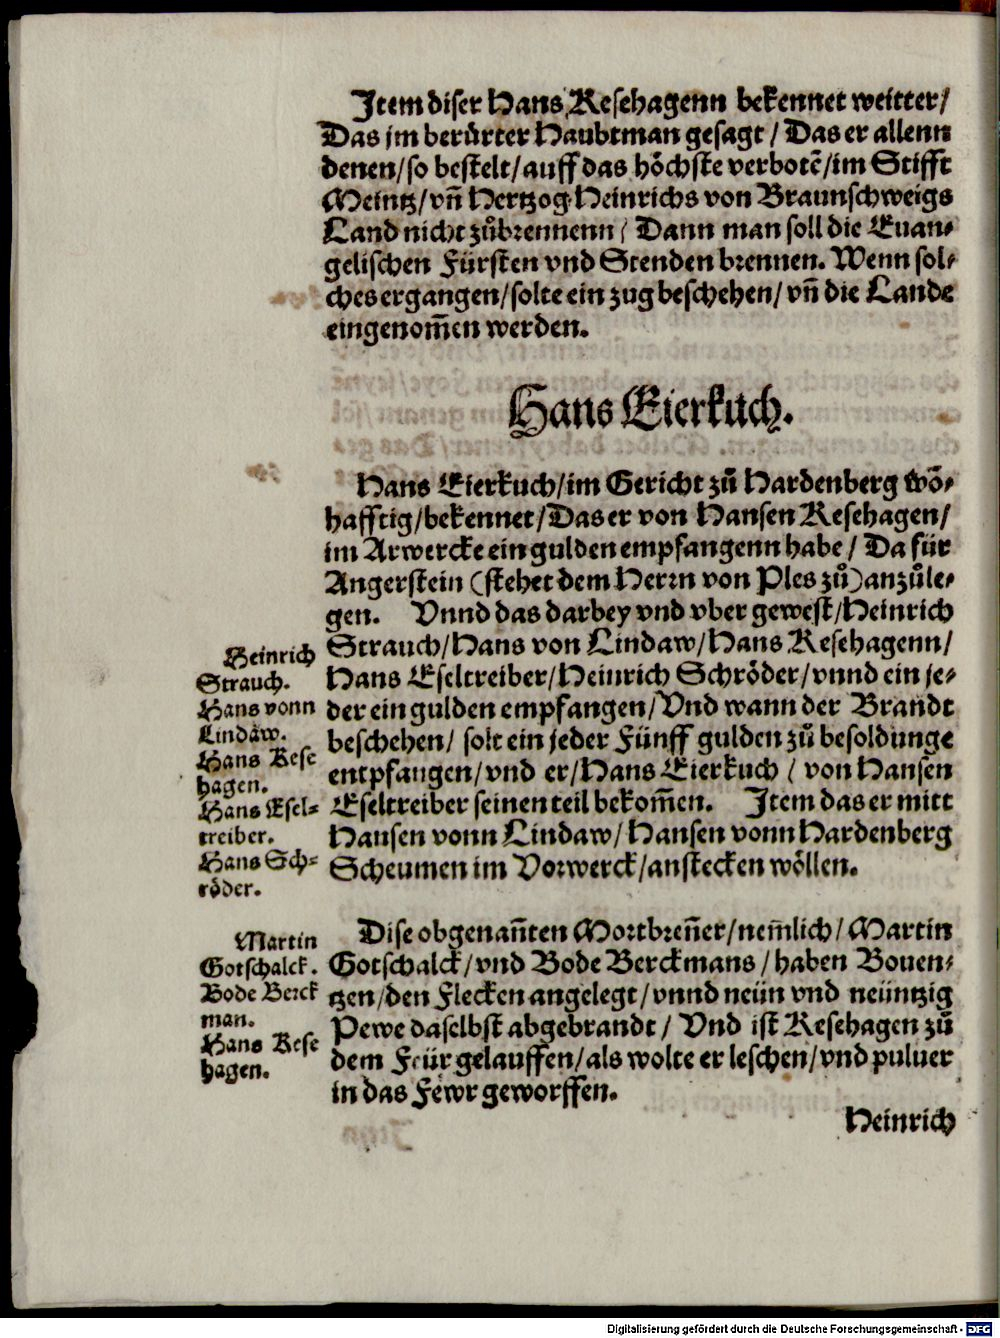 Item diser Hans Resehagenn bekennet weitter/
Das jm berürter Haubtman gesagt/ Das er allenn
denen/so bestelt/auff das höchste verbotē/im Stifft
Meintz/vn̄ Hertzog Heinrichs von Braunschweigs
Land nicht zůbrennenn/ Dann man soll die Euan-
gelischen Fürsten vnd Stenden brennen. Wenn sol-
ches ergangen/solte ein zug beschehen/vn̄ die Lande
eingenom̄en werden.
Hans Eierkuch.
Hans Eierkuch/im Gericht zů Hardenberg wō-
hafftig/bekennet/Das er von Hansen Resehagen/
im Arwercke ein gulden empfangenn habe/ Da für
Angerstein (stehet dem Herrn von Ples zů) anzůle-
gen. Vnnd das darbey vnd vber gewest/Heinrich
Strauch/Hans von Lindaw/Hans Resehagenn/
Hans Eseltreiber/Heinrich Schröder/vnnd ein je-
der ein gulden empfangen/Vnd wann der Brandt
beschehen/ solt ein jeder Fünff gulden zů besoldunge
entpfangen/vnd er/Hans Eierkuch/ von Hansen
Eseltreiber seinen teil bekom̄en. Item das er mitt
Hansen vonn Lindaw/Hansen vonn Hardenberg
Scheumen im Vorwerck/anstecken wöllen.
Heinrich
Strauch.
Hans vonn
Lindaw.
Hans Rese
hagen.
Hans Esel-
treiber.
Hans Sch-
röder.
Dise obgenan̄ten Mortbren̄er/nem̄lich/Martin
Gotschalck/vnd Bode Berckmans/haben Bouen-
tzen/den Flecken angelegt/vnnd neün vnd neüntzig
Pewe daselbst abgebrandt/ Vnd ist Resehagen zů
dem Feür gelauffen/als wolte er leschen/vnd puluer
in das Fewr geworffen.
Martin
Gotschalck.
Bode Berck
man.
Hans Rese
hagen.
Heinrich
Digitalisierung gefördert durch die Deutsche Forschungsgemeinschaft - DFG